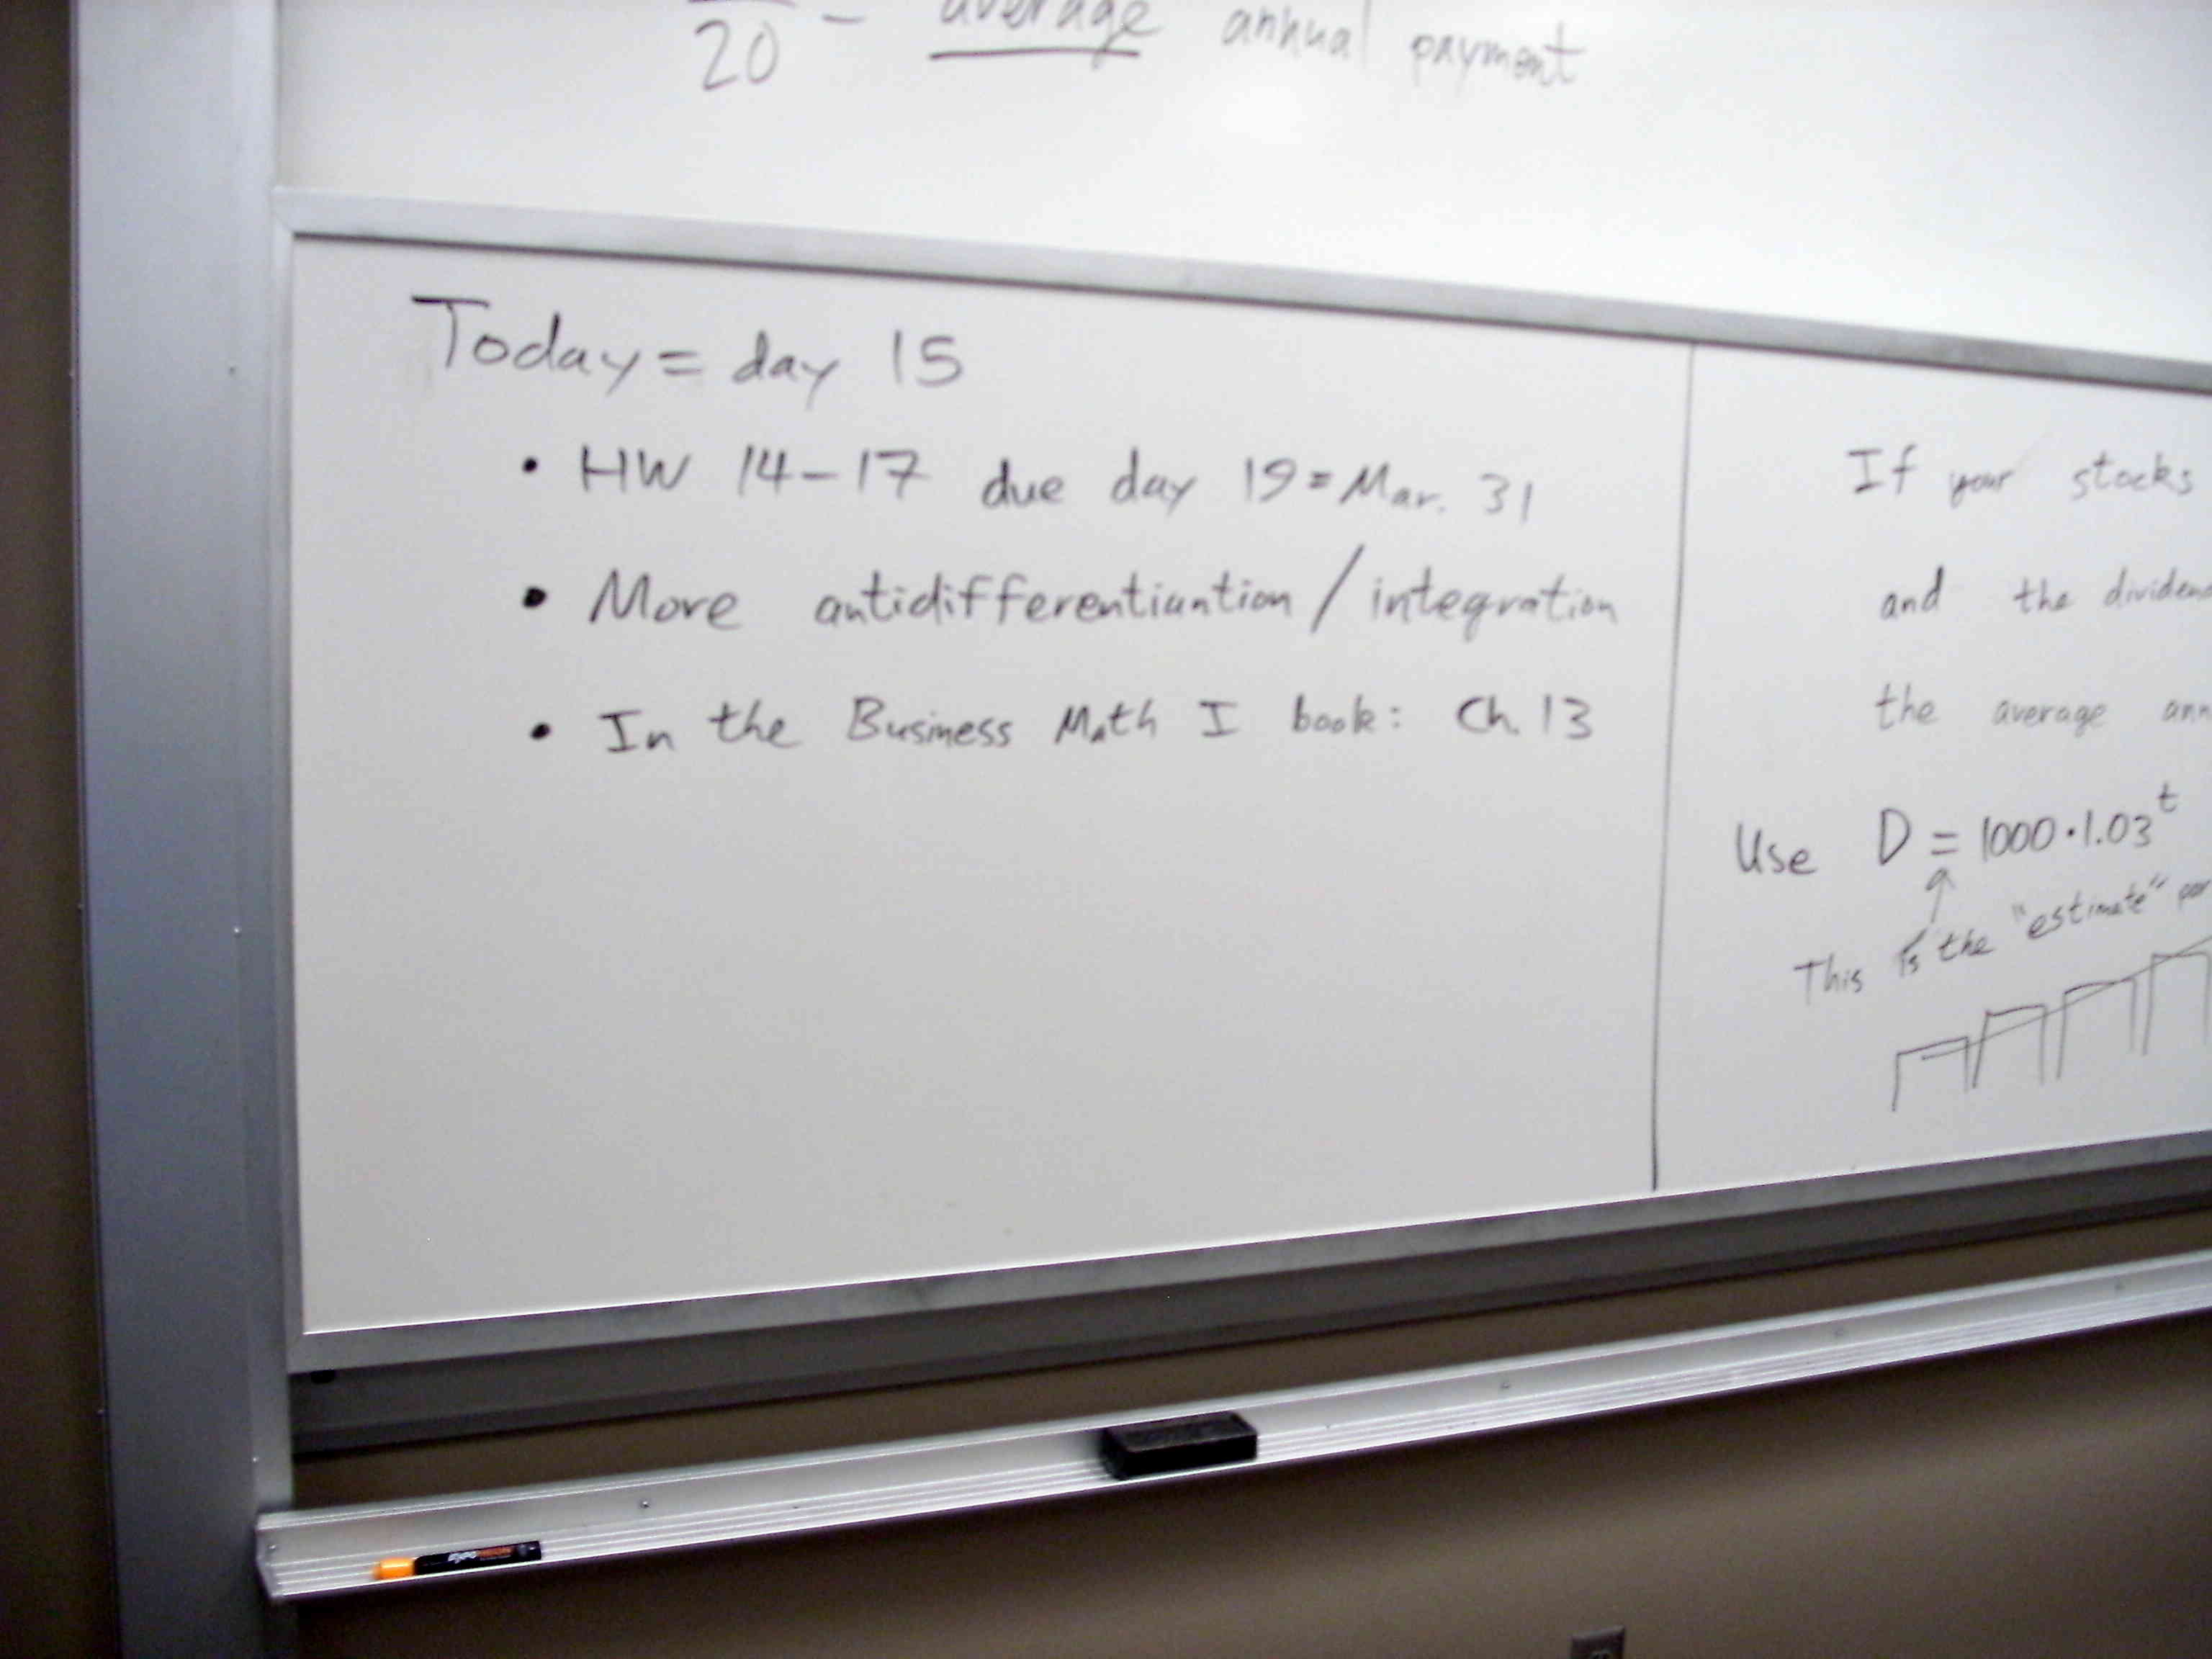 20 — average annual payment
Today = day 15
• HW 14-17 due day 19 = Mar. 31
• More antidifferentiantion / integration
• In the Business Math I book: Ch. 13
If your stocks
and the
the average
Use D = 1000 · 1.03^t
This is the "estimate"
EXPO